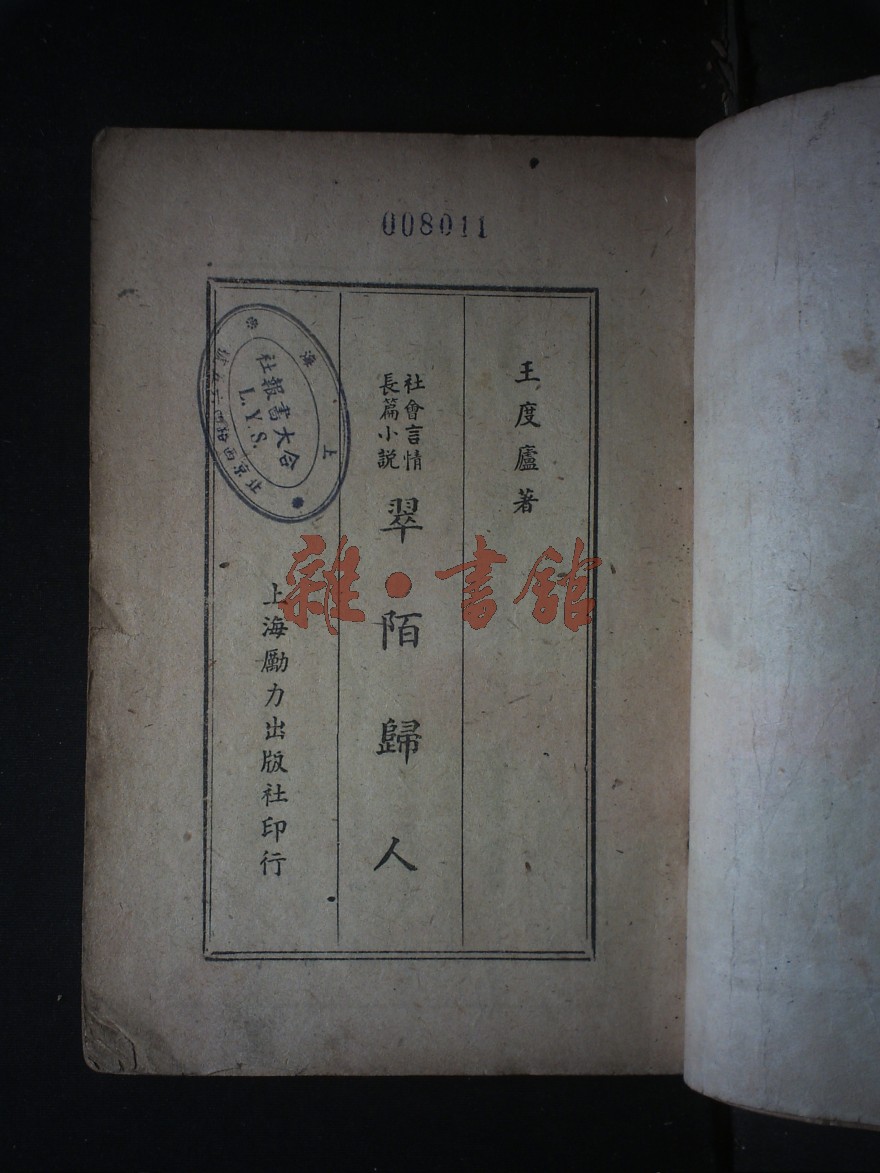 008011
王度廬著
社會言情
長篇小説
翠陌歸人
上海勵力出版社印行
上海
合大書報社
L.Y.S.
雜·書館